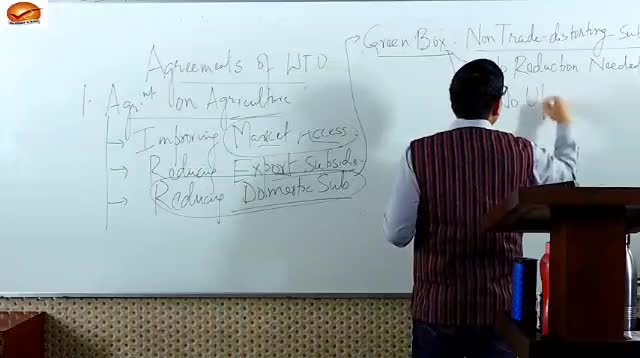 Agreements of WTO
1. Agri^nt on Agriculture
→ Improving Market Access.
→ Reducing Export Subsids.
→ Reducing Domestic Sub
Green Box - Non Trade-distorting Sub
Reduction Needed